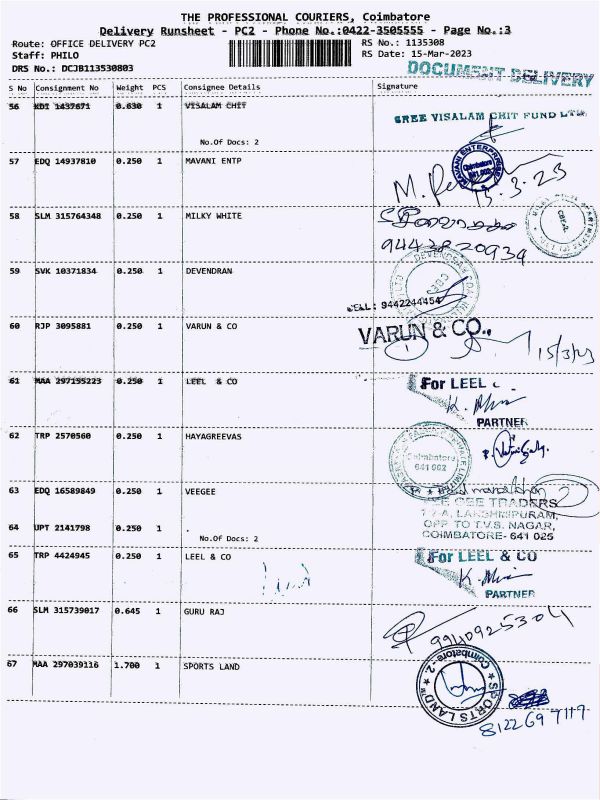 THE PROFESSIONAL COURIERS, Coimbatore
Delivery Runsheet - PC2 - Phone No.:0422-3505555 - Page No.:3
Route: OFFICE DELIVERY PC2 RS No.: 1135308
Staff: PHILO RS Date: 15-Mar-2023
DRS No.: DCJB113530803
DOCUMENT DELIVERY
S No Consignment No Weight PCS Consignee Details Signature
56 KDI 1437671 0.630 1 VISALAM CHIT
SREE VISALAM CHIT FUND LTD.
No.Of Docs: 2
57 EDQ 14937810 0.250 1 MAVANI ENTP
MAVANI ENTERPRISES Coimbatore 641 002
15.3.23
58 SLM 315764348 0.250 1 MILKY WHITE
9443820939
59 SVK 10371834 0.250 1 DEVENDRAN
CELL: 9442244454
60 RJP 3095881 0.250 1 VARUN & CO
VARUN & CO.,
15/3/23
61 MAA 297155223 0.250 1 LEEL & CO
For LEEL
PARTNER
62 TRP 2570560 0.250 1 HAYAGREEVAS
Coimbatore
641 002
63 EDQ 16589849 0.250 1 VEEGEE
GEE TRADERS
LAKSHMIPURAM,
OPP TO T.V.S. NAGAR,
COIMBATORE- 641 025
64 UPT 2141798 0.250 1 .
No.Of Docs: 2
65 TRP 4424945 0.250 1 LEEL & CO
For LEEL & CO
PARTNER
66 SLM 315739017 0.645 1 GURU RAJ
9940925304
67 MAA 297039116 1.700 1 SPORTS LAND
Coimbatore-2. SPORTS LAND
8122697117